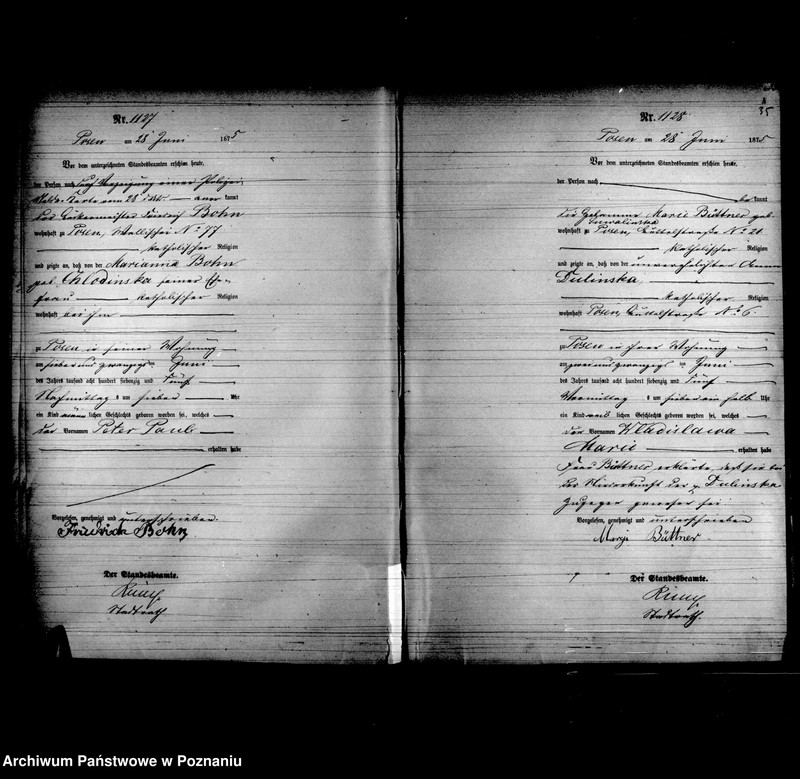 Nr. 1127
Posen am 28 Juni 1875
Vor dem unterzeichneten Standesbeamten erschien heute,
der Person nach
kannt
Bohn
wohnhaft zu Posen, Wallischei No 77
katholischer Religion
und zeigte an, daß von der Marianna Bohn
geb. Chlodinska seiner Ehe-
frau katholischer Religion
wohnhaft bei ihm
zu Posen in seiner Wohnung
am sieben und zwanzigsten Juni
des Jahres tausend acht hundert siebenzig und fünf
Nachmittag s um sieben Uhr
ein Kind männ lichen Geschlechts geboren worden sei, welches
den Vornamen Peter Paul
erhalten habe
Vorgelesen, genehmigt und unterschrieben.
Friedrich Bohn
Der Standesbeamte.
Stadtrath
A
35
Nr. 1128
Posen am 28 Juni 1875
Vor dem unterzeichneten Standesbeamten erschien heute,
der Person nach
be kannt
die Hebamme Marie Büttner geb.
wohnhaft zu Posen, No 21
katholischer Religion
und zeigte an, daß von der unverehelichten Anna
Dulinska
katholischer Religion
wohnhaft Posen, No 6
zu Posen in ihrer Wohnung
am zwei und zwanzigsten Juni
des Jahres tausend acht hundert siebenzig und fünf
Vormittag s um sieben ein halb Uhr
ein Kind weib lichen Geschlechts geboren worden sei, welches
den Vornamen Wladislawa
Marie erhalten habe
Frau Büttner erklärte, daß sie bei
der Niederkunft der p. Dulinska
zugegen gewesen sei.
Vorgelesen, genehmigt und unterschrieben
Marya Büttner
Der Standesbeamte.
Stadtrath.
Archiwum Państwowe w Poznaniu